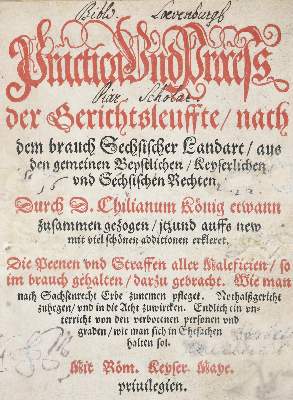 Bibl. Loevenburgh
Practica Und Proceß
Rar. Scholar.
der Gerichtsleuffte / nach
dem brauch Sechsischer Landart / aus
den gemeinen Bepstlichen / Keyserlichen
vnd Sechsischen Rechten
Durch D. Chilianum König etwann
zusammen gezogen / jtzund auffs new
mit viel schönen additionen erkleret.
Die Peenen vnd Straffen aller Maleficien / so
im brauch gehalten / darzu gebracht. Wie man
nach Sachsenrecht Erbe zunemen pfleget. Nothalßgericht
zuhegen / vnd in die Acht zuwircken. Endlich ein vn-
terricht von den verbotenen personen vnd
graden / wie man sich in Ehesachen
halten sol.
Mit Röm. Keyser. Maye.
priuilegien.